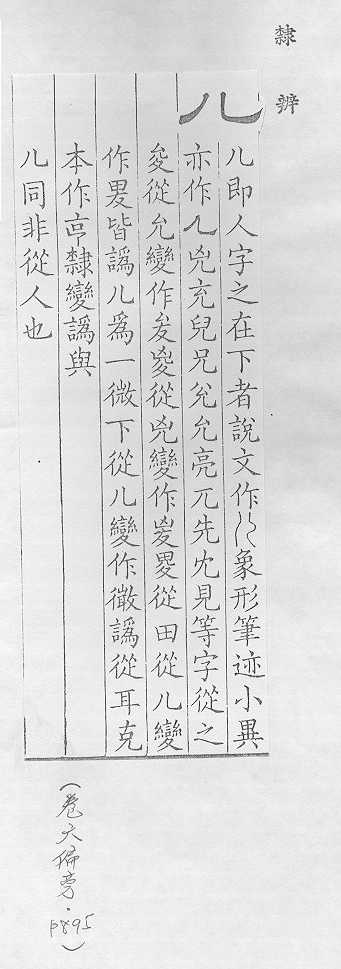 隸辨
儿
儿即人字之在下者說文作𠒆象形筆迹小異
亦作𠆢兇充兒兄兊允亮兀先冘見等字從之
夋從允變作夋㚇從兇變作㚇畟從田從儿變
作畟皆譌儿爲一微下從儿變作微譌從耳克
本作亯隸變譌與
儿同非從人也
(卷六偏旁.p895)